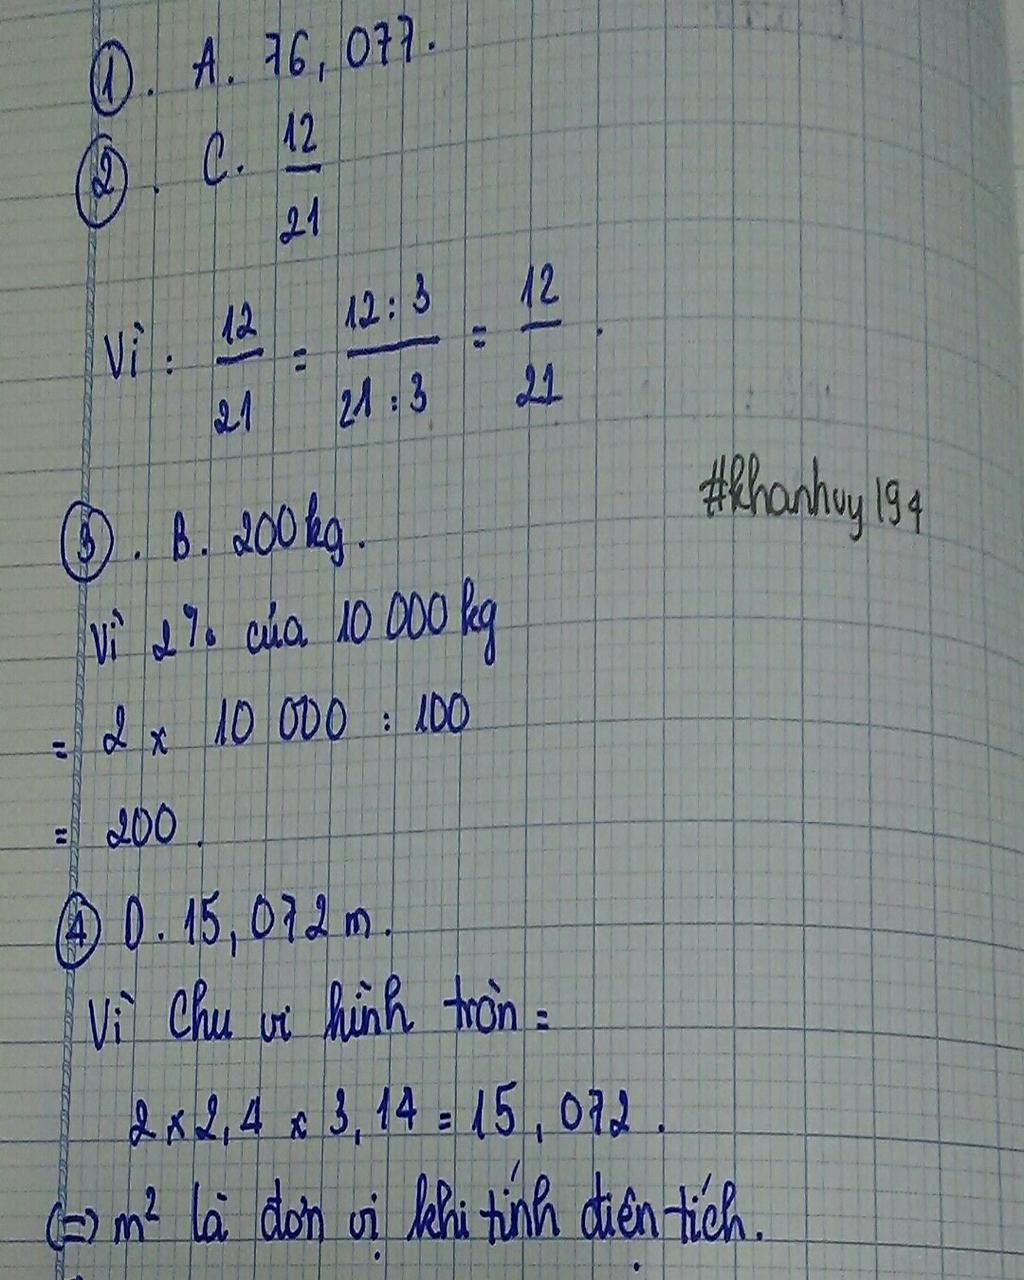 1. A. 76,077.
2. C. 12/21
Vì: 12/21 = 12:3/21:3 = 12/21.
#khanhuy194
3. B. 200kg.
Vì 2% của 10 000kg
= 2 x 10 000 : 100
= 200.
4 D. 15,072m.
Vì Chu vi hình tròn =
2 x 2,4 x 3,14 = 15,072.
(=> m² là đơn vị khi tính diện tích.